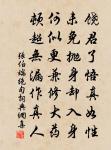 饒君了悟真如性
未免拋身卻入身
何似更兼修大藥
頓超無漏作真人
張伯端絕句詞典網書